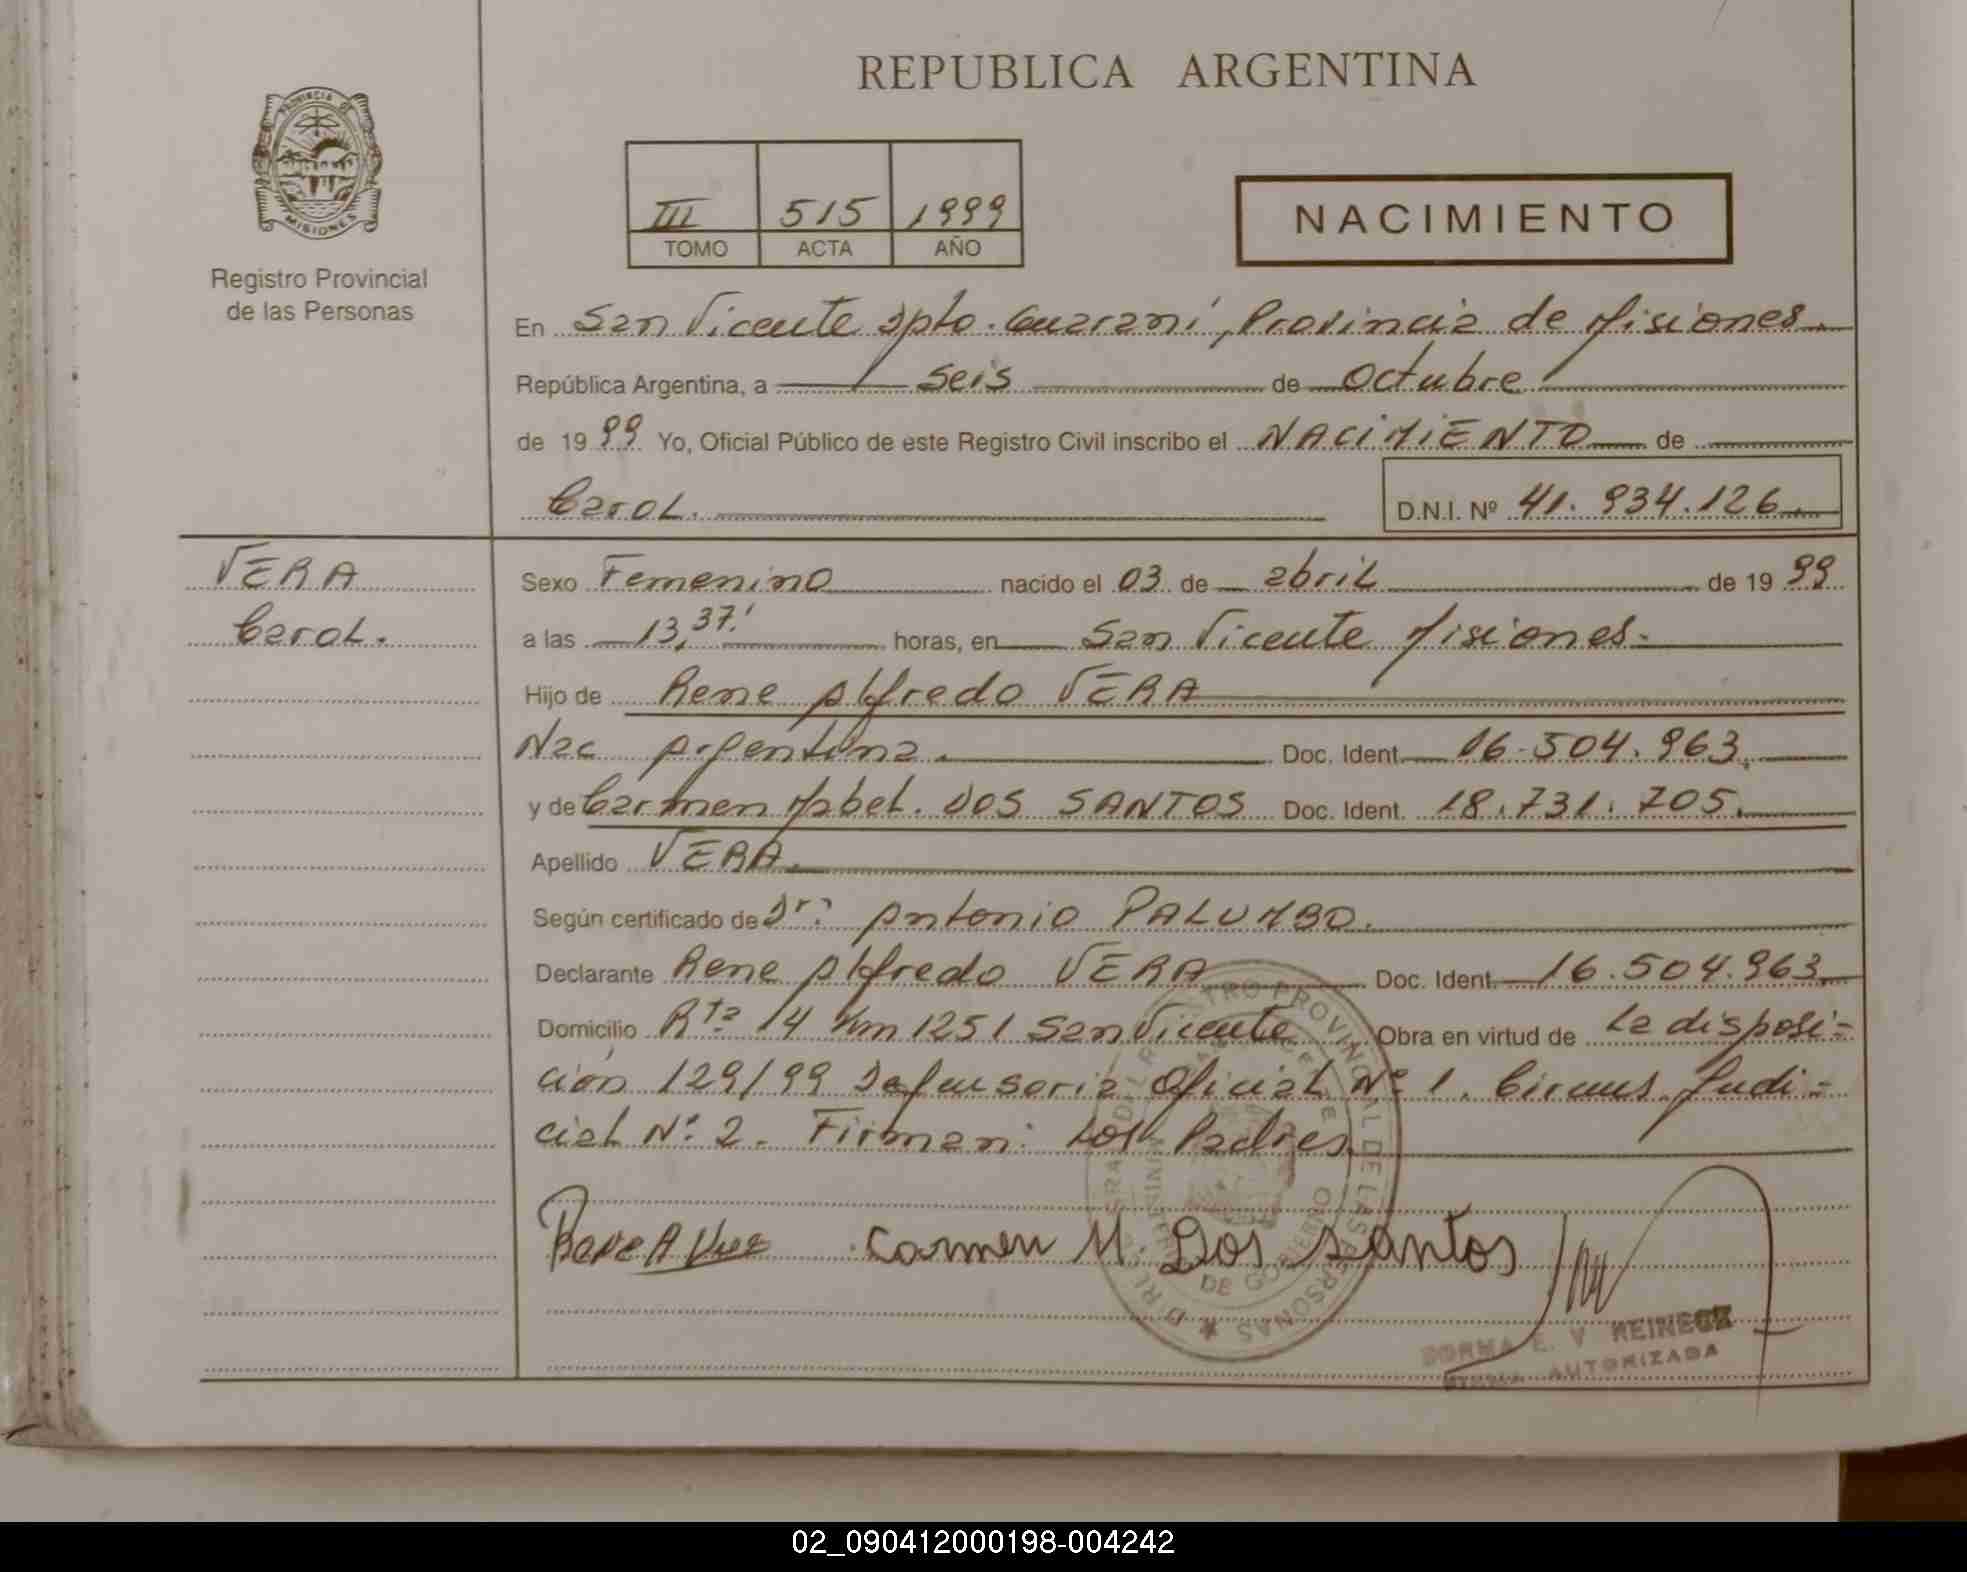 REPUBLICA ARGENTINA
PROVINCIA DE
MISIONES
Registro Provincial
de las Personas
III 515 1999
TOMO ACTA AÑO
NACIMIENTO
En San Vicente Dpto. Guaraní, Provincia de Misiones.
República Argentina, a Seis de Octubre
de 1999 Yo, Oficial Público de este Registro Civil inscribo el NACIMIENTO de
Carol. D.N.I. Nº 41.934.126
VERA
Carol.
Sexo Femenino nacido el 03 de abril de 1999
a las 13,37' horas, en San Vicente Misiones.
Hijo de Rene Alfredo VERA
Nac Argentina. Doc. Ident. 16.504.963.
y de Carmen Mabel. DOS SANTOS Doc. Ident. 18.731.705.
Apellido VERA.
Según certificado de Dr. Antonio PALUMBO.
Declarante Rene Alfredo VERA Doc. Ident. 16.504.963.
Domicilio Rta 14 Km 1251 San Vicente Obra en virtud de la disposi=
ción 129/99 Defensoria Oficial Nº 1. Circuns. Judi=
cial Nº 2. Firman: Los Padres.
Rene A Vera Carmen M. Dos Santos
E. V REINECK
FIRMA AUTORIZADA
02_090412000198-004242